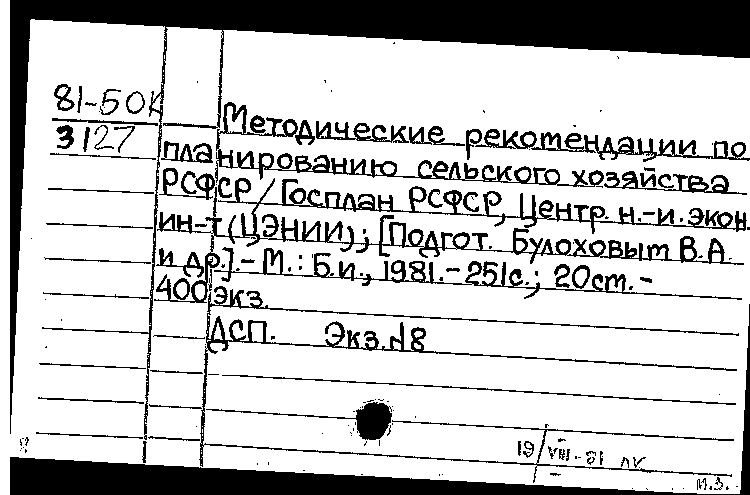 81-50К
3127
Методические рекомендации по
планированию сельского хозяйства
РСФСР / Госплан РСФСР, Центр. н.-и. экон.
ин-т (ЦЭНИИ); [Подгот. Булоховым В.А.
и др.]. - М.: Б.и., 1981. - 251с.; 20см. -
400 экз.
ДСП. Экз. №8
19/VIII-81
И.З.